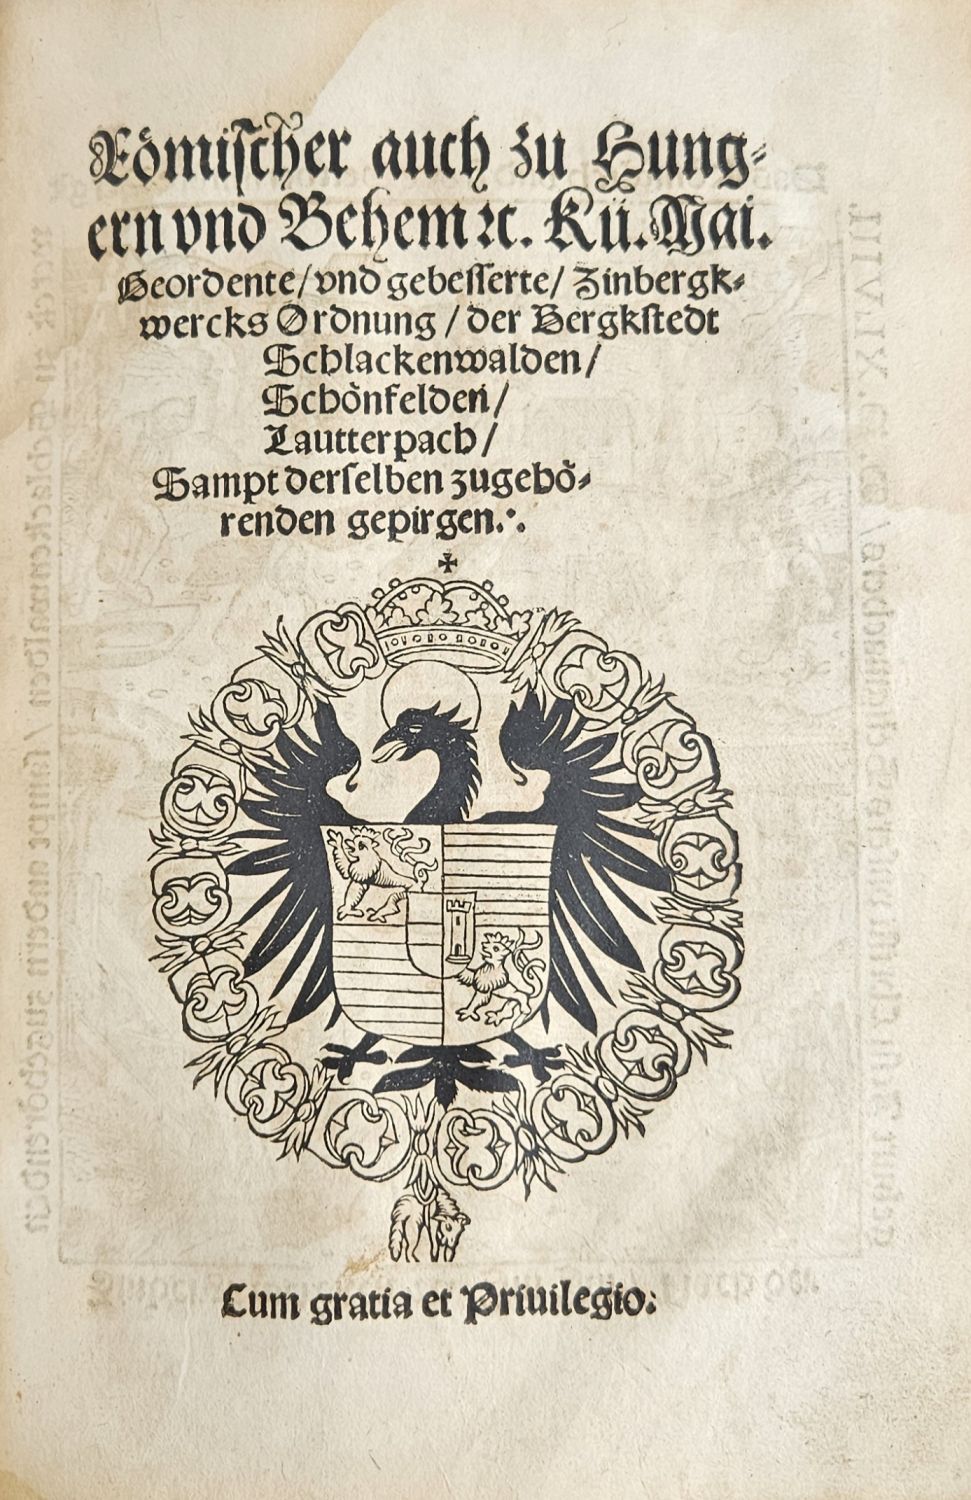 Römischer auch zu Hung⸗
ern vnd Behem ꝛc. Kü. Mai.
Geordente / vnd gebesserte / Zinbergk⸗
wercks Ordnung / der Bergkstedt
Schlackenwalden /
Schönfelden /
Lautterpach /
Sampt derselben zugehö⸗
renden gepirgen.
Cum gratia et Priuilegio: